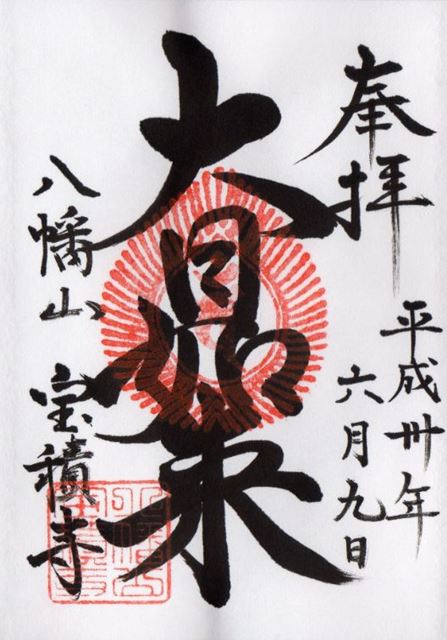 奉拝
平成卅年
六月九日
大
八幡山 宝積寺